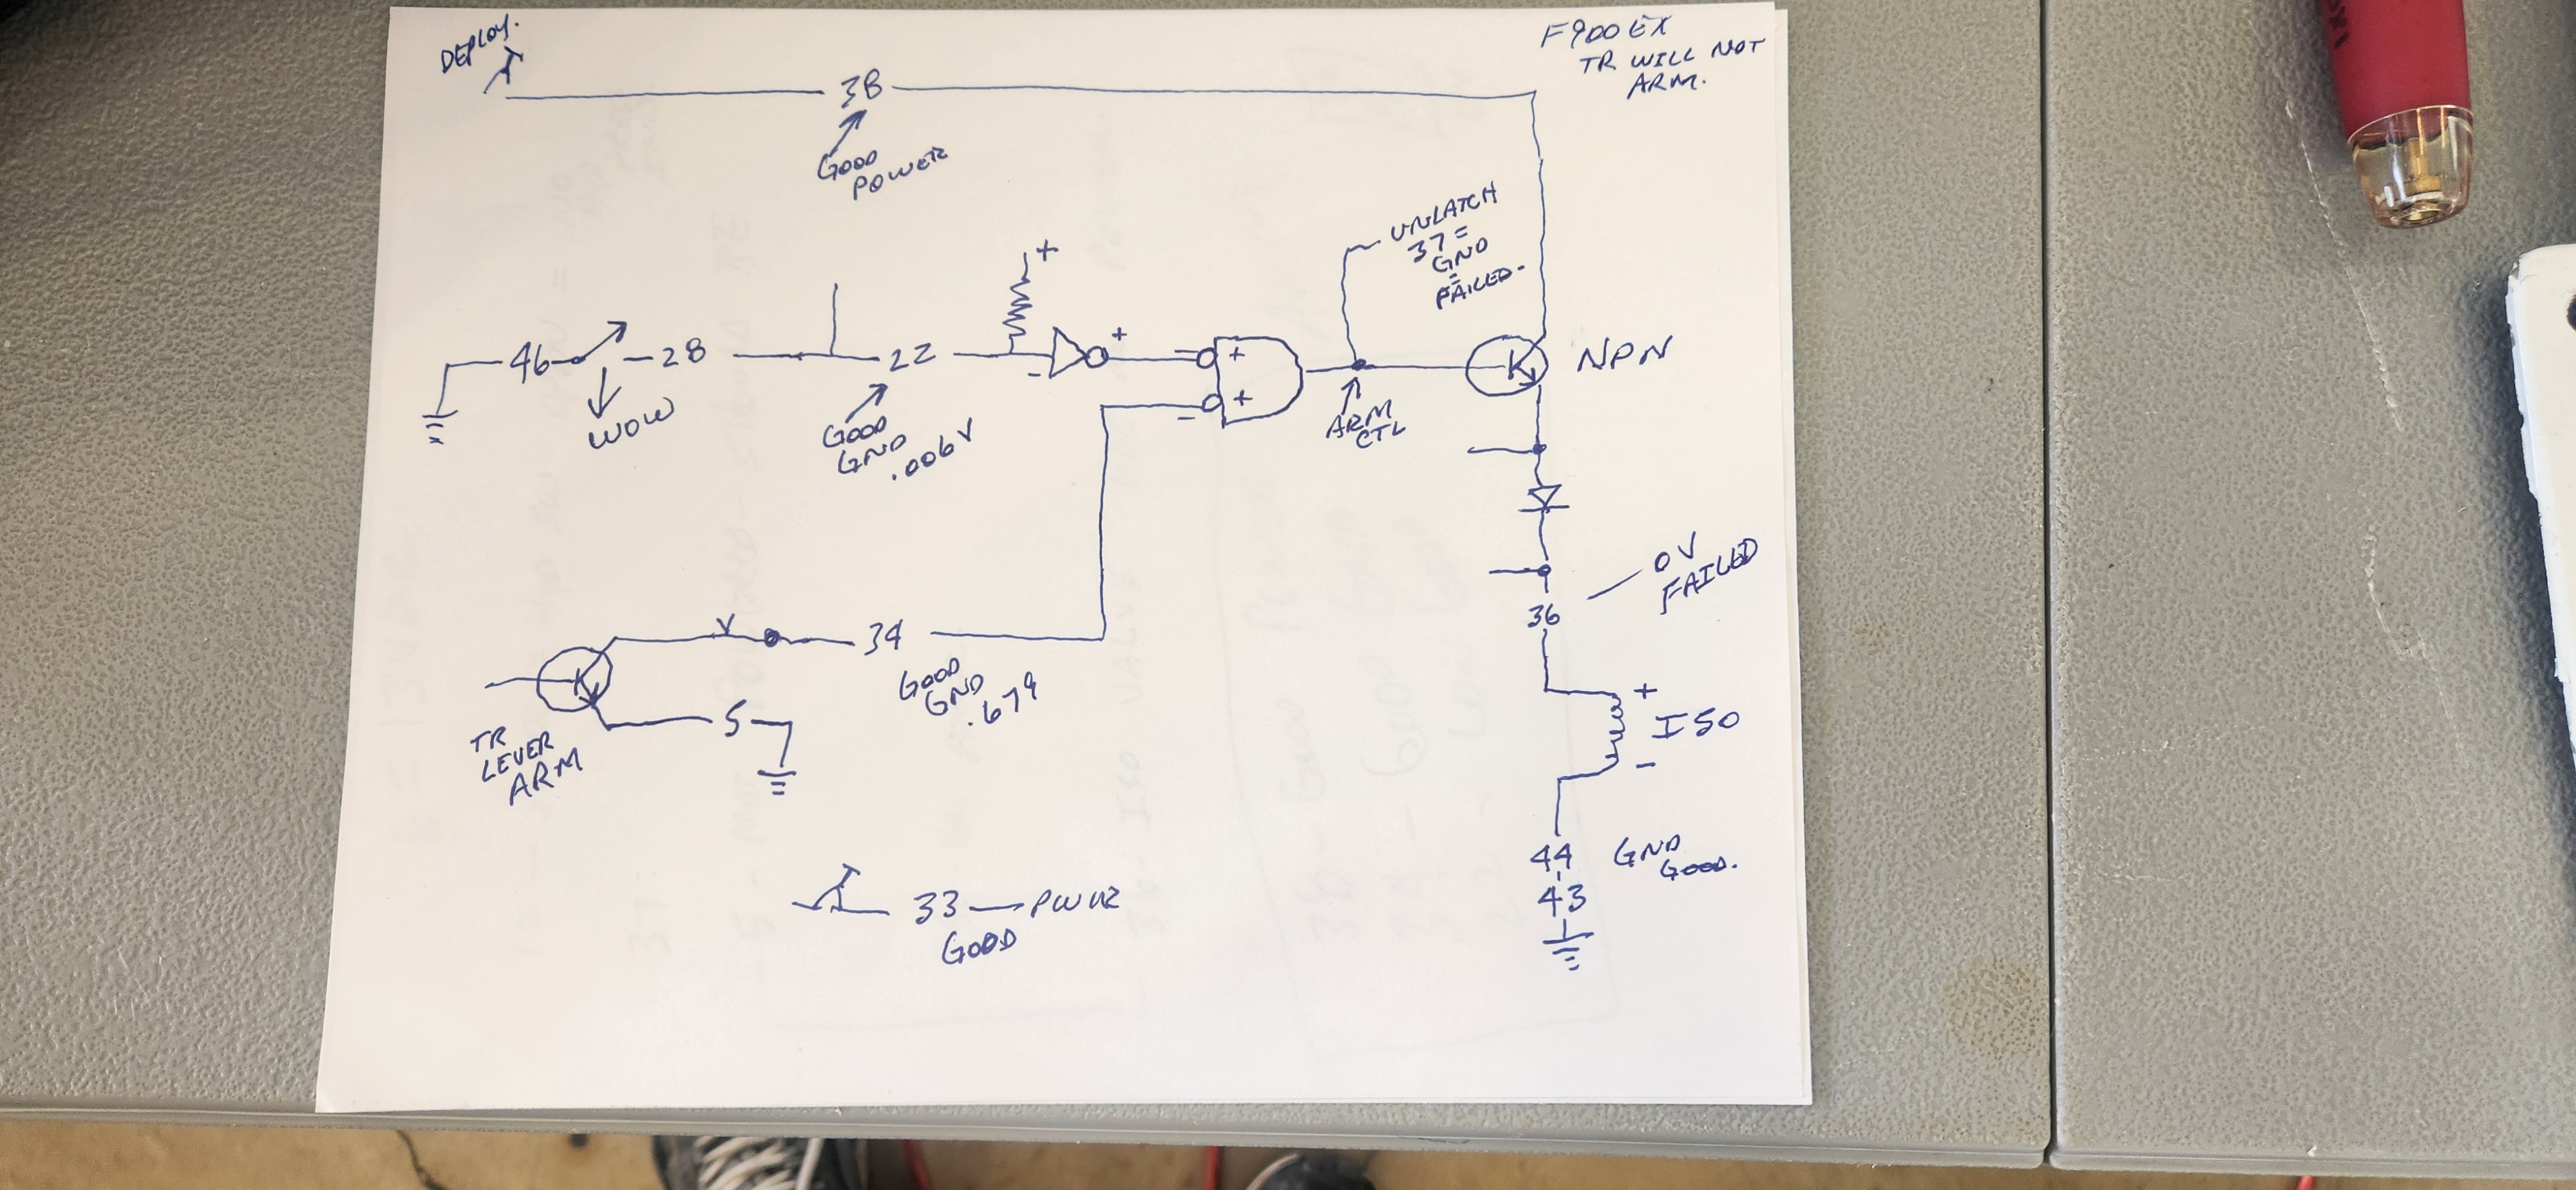 DEPLOY.
F900EX
TR WILL NOT
ARM.
38
GOOD
POWER
UNLATCH
37 =
GND
=
FAILED.
+
46
28
22
+
+
+
NPN
WOW
GOOD
GND
.006V
-
-
ARM
CTL
0V
FAILED
36
34
GOOD
GND
.679
5
TR
LEVER
ARM
+
ISO
-
44
43
GND
GOOD.
33 — PWR
GOOD